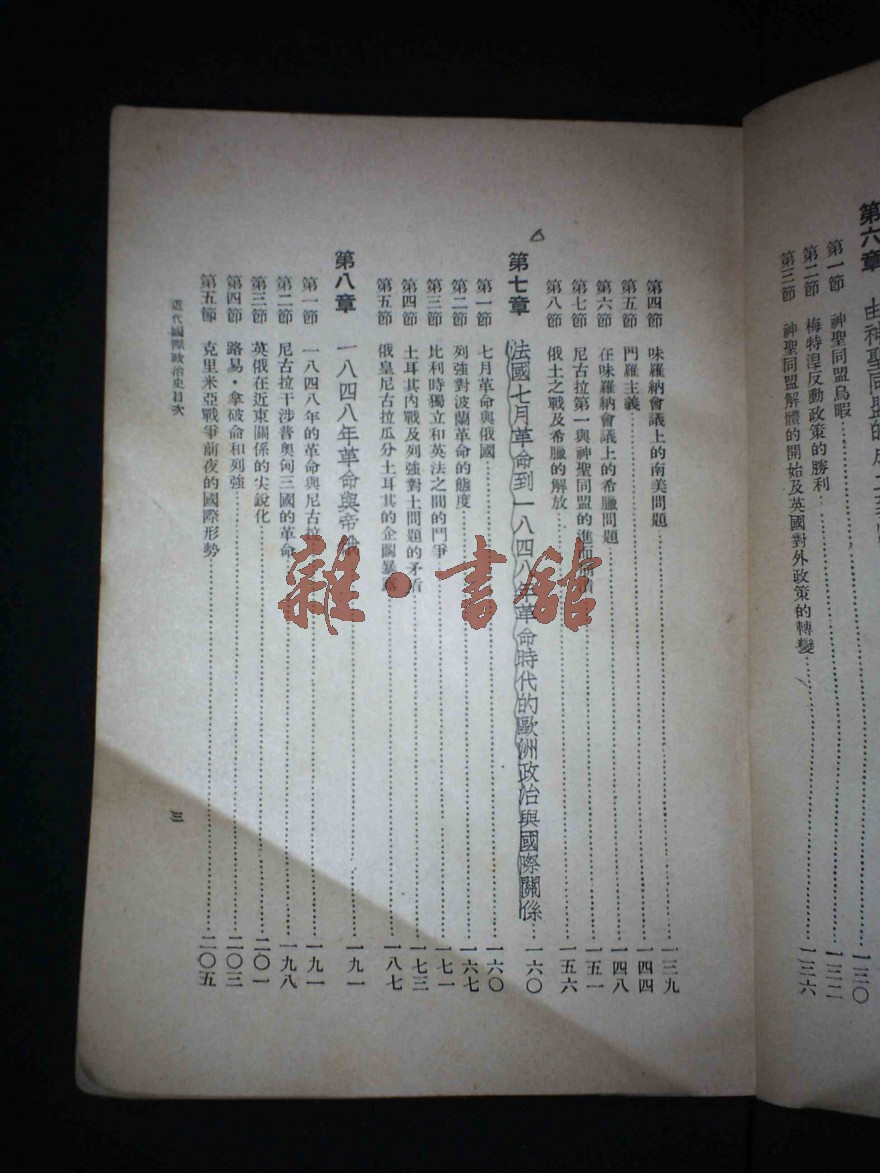 第六章 由神聖同盟的
第一節 神聖同盟烏暇……一三〇
第二節 梅特涅反動政策的勝利……一三二
第三節 神聖同盟解體的開始及英國對外政策的轉變……一三六
第四節 味羅納會議上的南美問題……一三九
第五節 門羅主義……一四四
第六節 在味羅納會議上的希臘問題……一四八
第七節 尼古拉第一與神聖同盟的進而崩潰……一五一
第八節 俄土之戰及希臘的解放……一五六
第七章 法國七月革命到一八四八年革命時代的歐洲政治與國際關係……一六〇
第一節 七月革命與俄國……一六〇
第二節 列強對波蘭革命的態度……一六七
第三節 比利時獨立和英法之間的鬥爭……一七一
第四節 土耳其內戰及列強對土問題的矛盾……一七三
第五節 俄皇尼古拉瓜分土耳其的企圖暴露……一八七
第八章 一八四八年革命與帝俄……一九一
第一節 一八四八年的革命與尼古拉……一九一
第二節 尼古拉干涉普奧匈三國的革命……一九八
第三節 英俄在近東關係的尖銳化……二〇一
第四節 路易·拿破侖和列強……二〇三
第五節 克里米亞戰爭前夜的國際形勢……二〇五
近代國際政治史目次
三
雜·書館